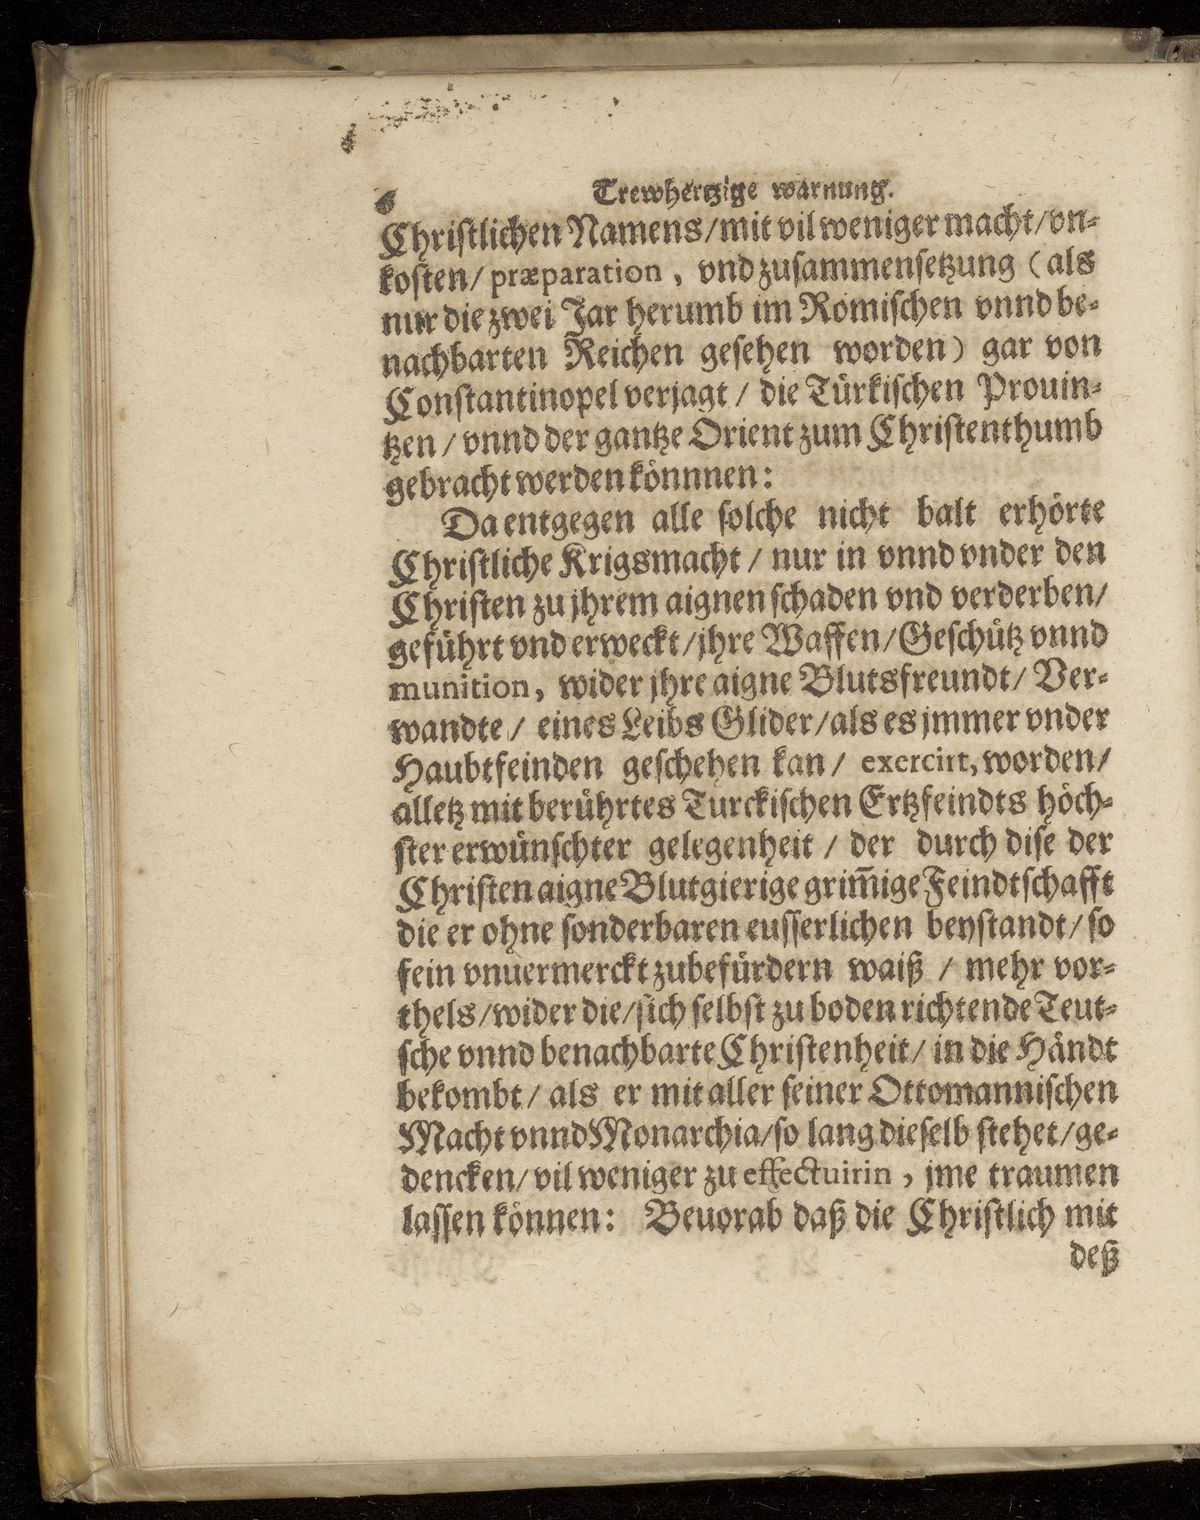 6 Trewhertzige warnung.
Christlichen Namens/mit vil weniger macht/vn-
kosten/ præparation, vnd zusammensetzung (als
nur die zwei Jar herumb im Römischen vnnd be-
nachbarten Reichen gesehen worden) gar von
Constantinopel verjagt / die Türkischen Prouin-
tzen / vnnd der gantze Orient zum Christenthumb
gebracht werden könnnen:
Da entgegen alle solche nicht balt erhörte
Christliche Krigsmacht / nur in vnnd vnder den
Christen zu jhrem aignen schaden vnd verderben/
geführt vnd erweckt/jhre Waffen/Geschütz vnnd
munition, wider jhre aigne Blutsfreundt/ Ver-
wandte / eines Leibs Glider/als es jmmer vnder
Haubtfeinden geschehen kan / exercirt, worden/
alletz mit berührtes Turckischen Ertzfeindts höch-
ster erwünschter gelegenheit / der durch dise der
Christen aigne Blutgierige grim̄ige Feindtschafft
die er ohne sonderbaren eusserlichen beystandt/ so
fein vnuermerckt zubefürdern waiß / mehr vor-
thels/wider die/sich selbst zu boden richtende Teut-
sche vnnd benachbarte Christenheit/ in die Händt
bekombt/ als er mit aller seiner Ottomannischen
Macht vnnd Monarchia/so lang dieselb stehet/ge-
dencken/ vil weniger zu effectuirin, jme traumen
lassen können: Beuorab daß die Christlich mit
deß